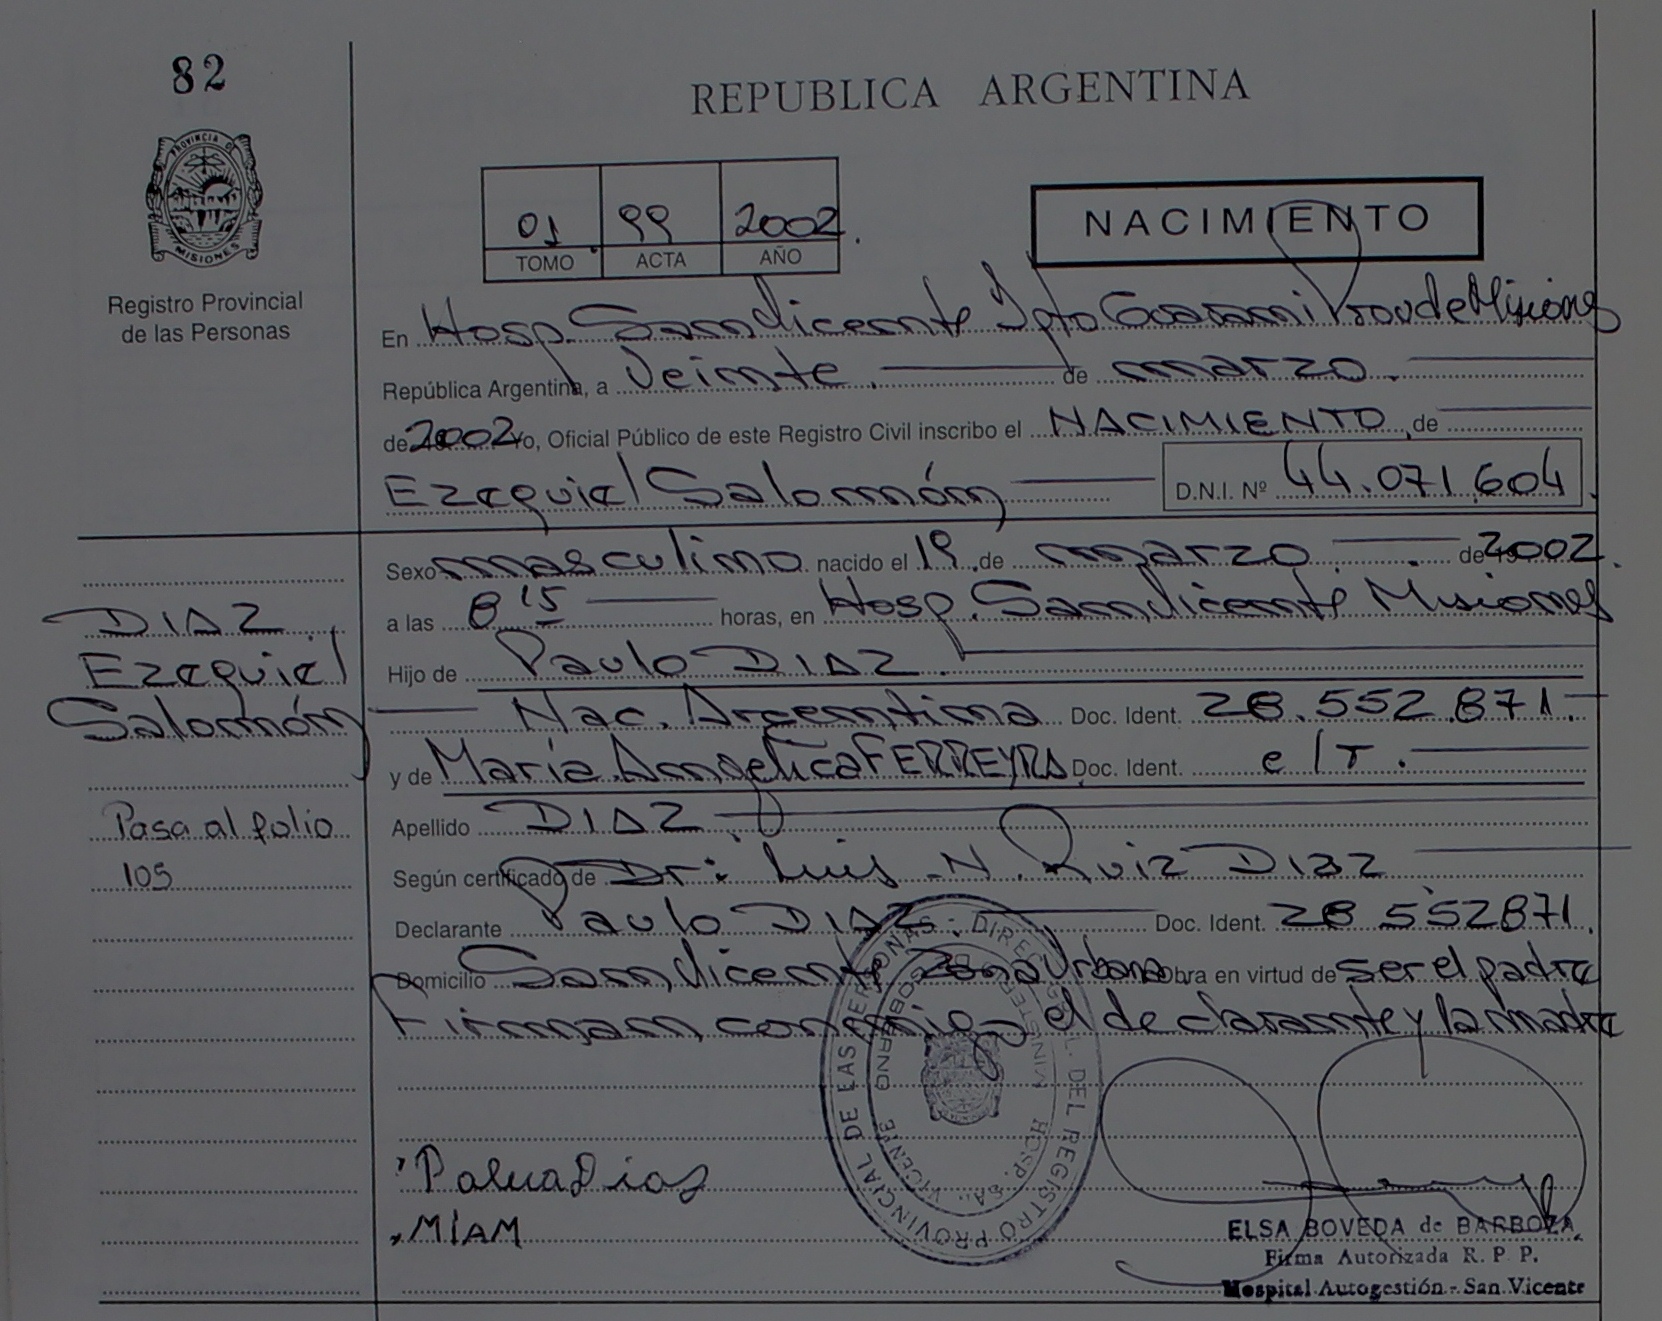 82
REPUBLICA ARGENTINA
PROVINCIA DE
MISIONES
Registro Provincial
de las Personas
01 99 2002
TOMO ACTA AÑO
NACIMIENTO
En Hosp. San Vicente Dpto Guarani Prov de Misiones
República Argentina, a Veinte de marzo
de 2002 yo, Oficial Público de este Registro Civil inscribo el NACIMIENTO de
Ezequiel Salomón D.N.I. Nº 44.071.604
Sexo masculino nacido el 19 de marzo de 2002.
a las 8 15 horas, en Hosp. San Vicente Misiones
Hijo de Paulo DIAZ
Nac. Argentina Doc. Ident. 28.552.871.
y de María Angelica FERREYRA Doc. Ident. e/T.
Apellido DIAZ
Según certificado de Dr: Luis N. Ruiz Diaz
Declarante Paulo DIAZ Doc. Ident. 28 552871.
Domicilio San Vicente Zona Urbana Obra en virtud de ser el padre
Firman conmigo el declarante y la madre
DIAZ
Ezequiel
Salomón
Pasa al folio
105
DIREC. GRAL. DEL REGISTRO PROVINCIAL DE LAS PERSONAS
MINISTERIO DE GOBIERNO
HOSP. SAN VICENTE
MIAM
ELSA BOVEDA de BARBOZA
Firma Autorizada R. P. P.
Hospital Autogestión - San Vicente